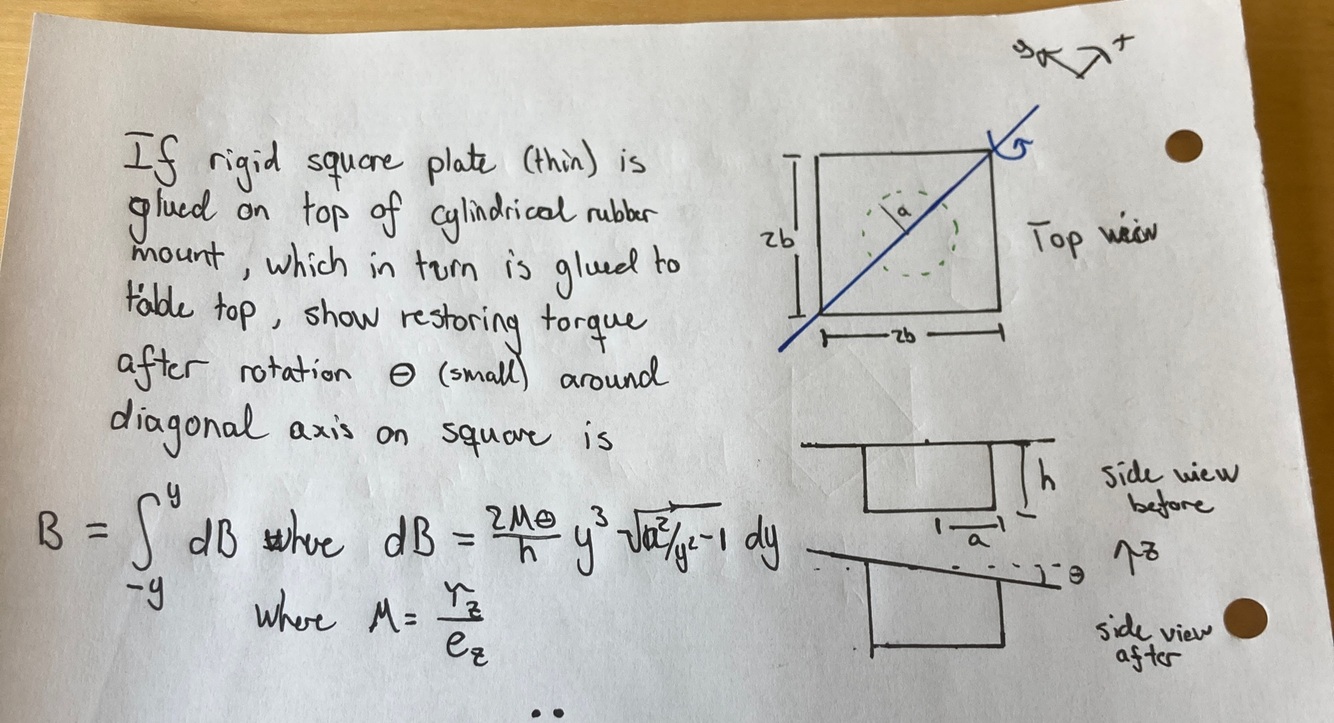 y x
If rigid square plate (thin) is
glued on top of cylindrical rubber
mount, which in turn is glued to
table top, show restoring torque
after rotation θ (small) around
diagonal axis on square is
B = ∫_{-y}^{y} dB where dB = \frac{2Mθ}{h} y³ √(a²/y² - 1) dy
where M = \frac{r_z}{e_z}
a
2b
2b
Top view
h
a
side view
before
↑z
θ
side view
after